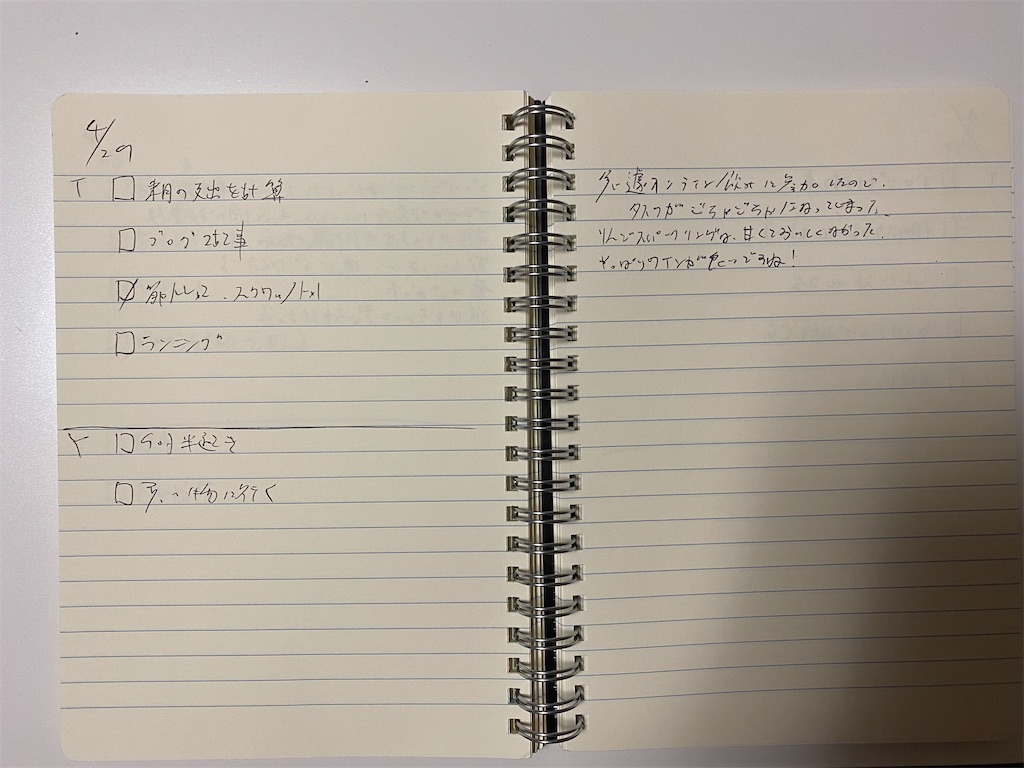 4/29
T □ 来月の支出を計算
□ ブログ記事
☑ 筋トレ スクワット
□ ランニング
Y □ 9時半起き
□ 買い物に行く
急遽オンライン飲みに参加したので、
タスクがごちゃごちゃになってしまった。
りんごスパークリングは、甘くておいしくなかった。
やっぱりワインが ですね!